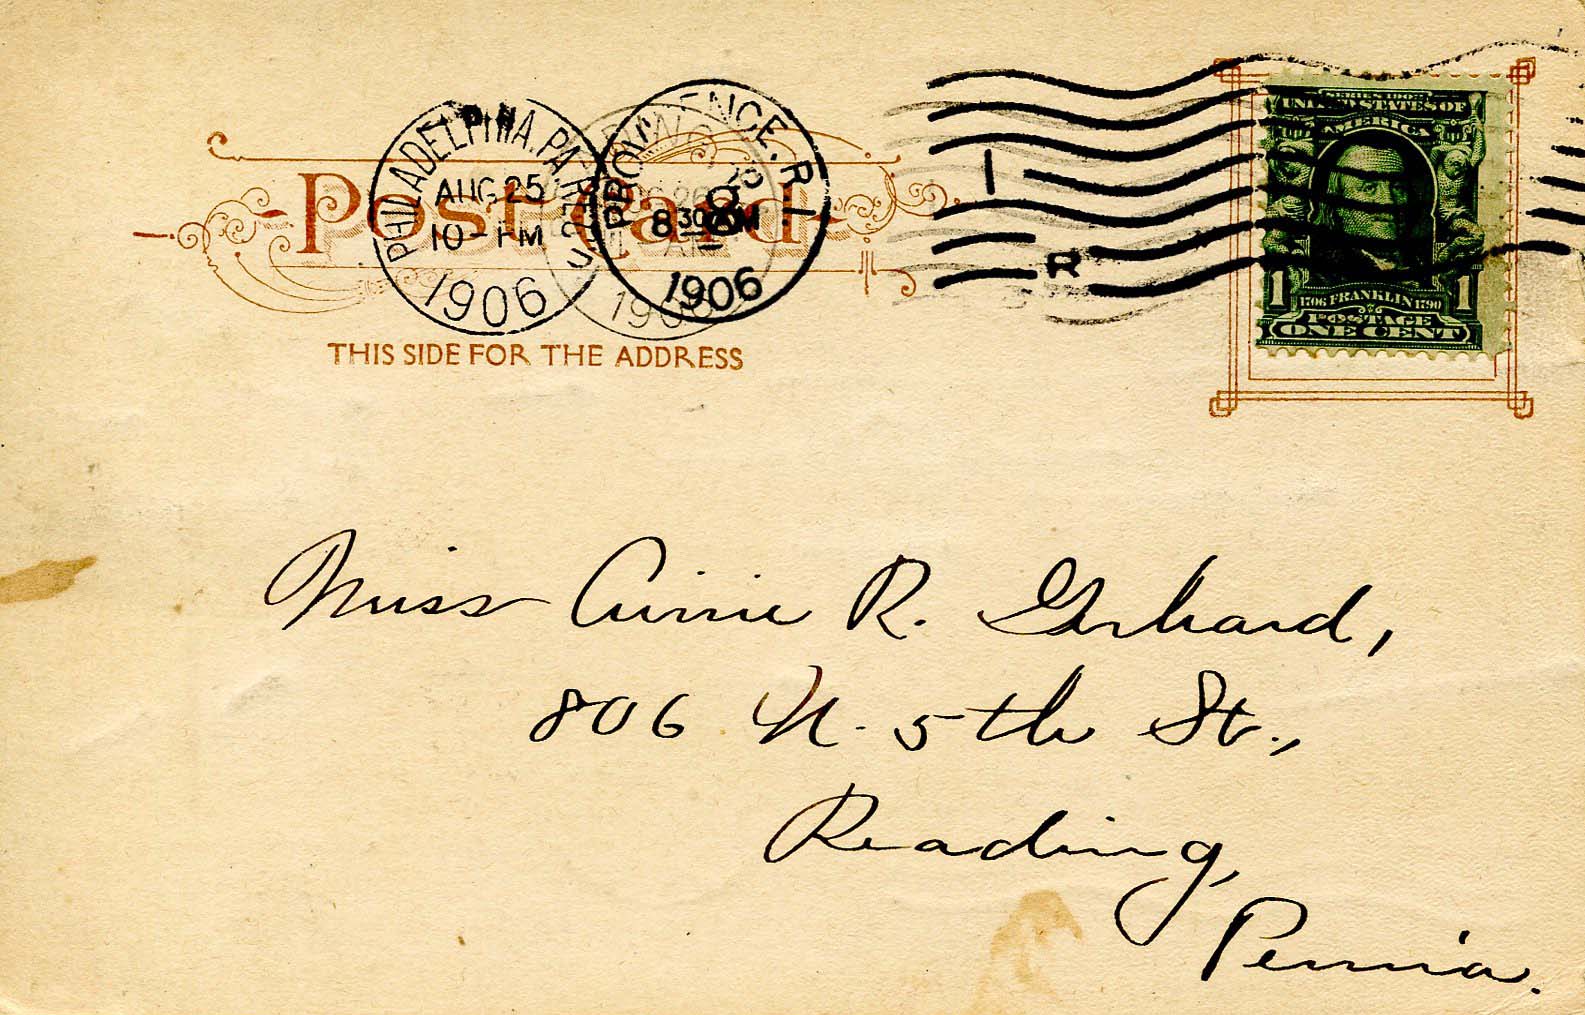 PHILADELPHIA. PA.
AUG 25
10 - PM
1906
PROVIDENCE. R.I.
8 30 AM
1906
1
R
Post Card
THIS SIDE FOR THE ADDRESS
UNITED STATES OF
AMERICA
1 1
1706 FRANKLIN 1790
POSTAGE
ONE CENT
Miss R. Gerhard,
806 N. 5th St.,
Reading,
Penn'a.